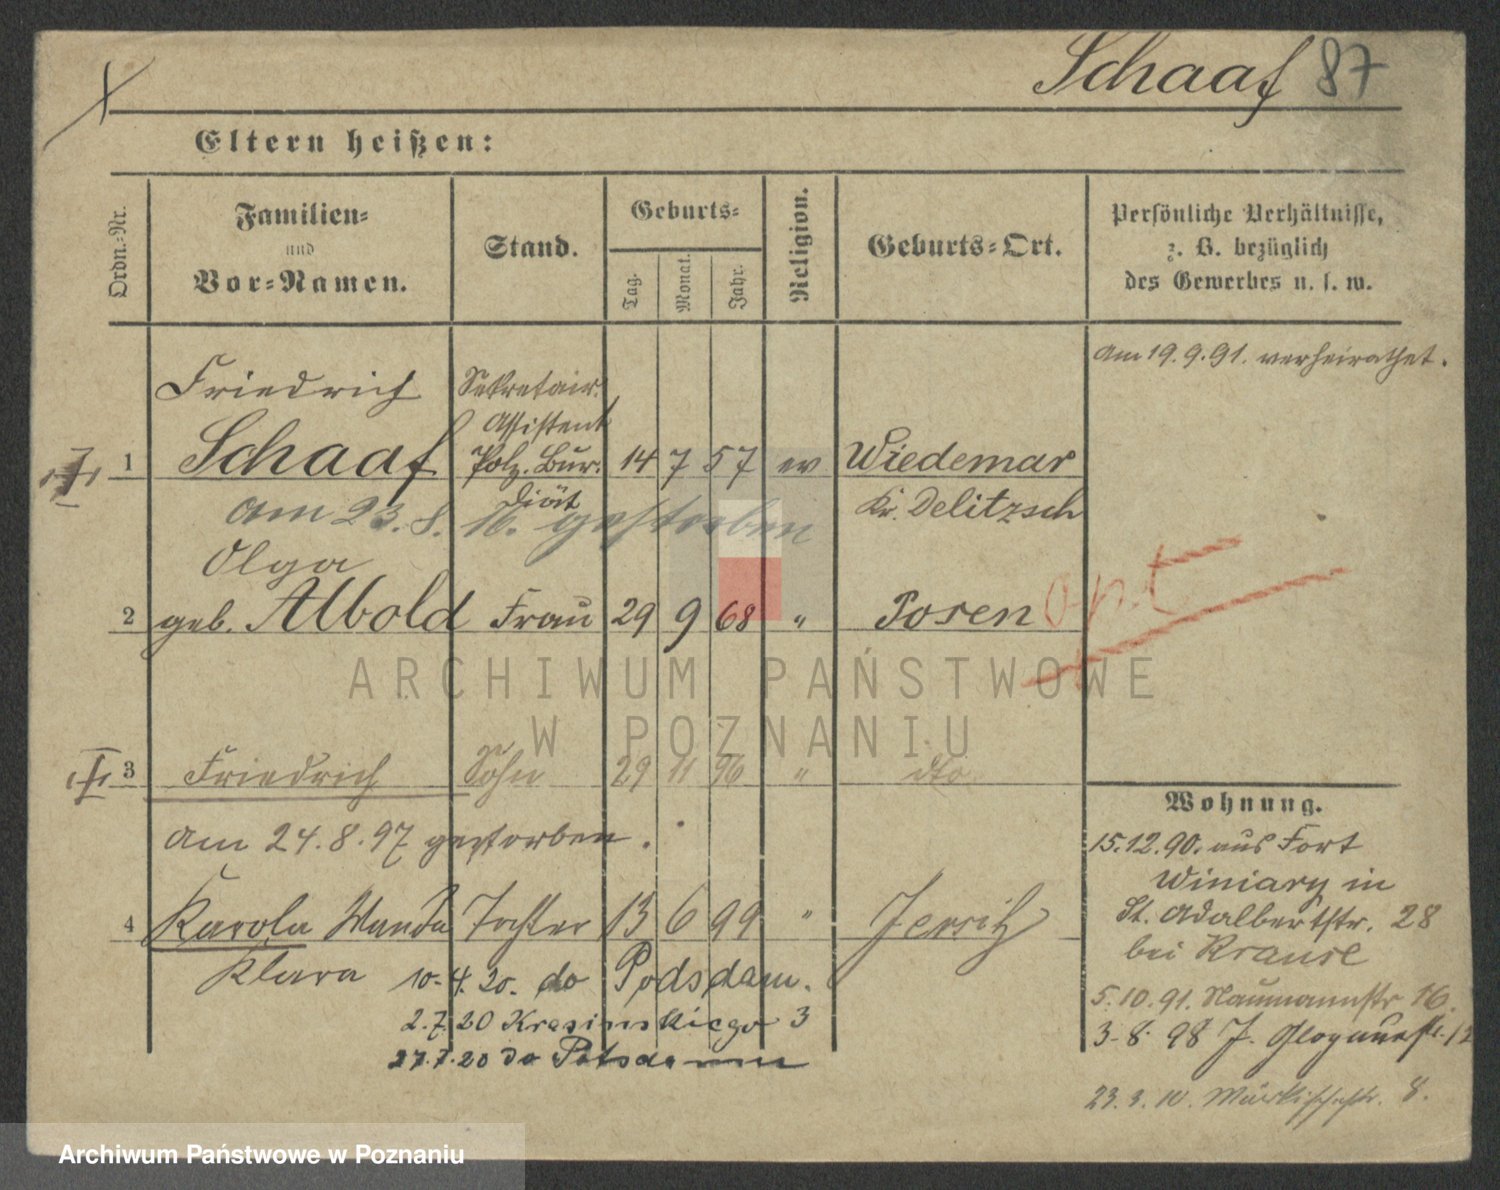 Schaaf 87
Eltern heißen:
Ordn.-Nr.
Familien-
und
Vor-Namen.
Stand.
Geburts-
Tag.
Monat.
Jahr.
Religion.
Geburts-Ort.
Persönliche Verhältnisse,
z. B. bezüglich
des Gewerbes u. s. w.
am 19.9.91. verheirathet.
Friedrich Sekretair.
Assistent
1 Schaaf Polz. Bur. 14 7 57 ev Wiedemar
Diät Kr. Delitzsch
am 23.8. 16. gestorben
Olga
2 geb. Albold Frau 29 9 68 " Posen opt
ARCHIWUM PAŃSTWOWE
W POZNANIU
3 Friedrich Sohn 29 11 96 " dto
am 24.8.97 gestorben.
4 Karola Wanda Tochter 13 6 99 " Jersitz
Klara 10.4.20. do Podsdam.
2.7.20 Krasinskiego 3
27.7.20 do Potsdamm
Wohnung.
15.12.90. aus Fort
Winiary in
St. Adalbertstr. 28
bei Krause
5.10.91. Naumannstr 16.
3.8.98 J. Glogauerstr. 12
23.3.10. Märkischestr. 8.
Archiwum Państwowe w Poznaniu